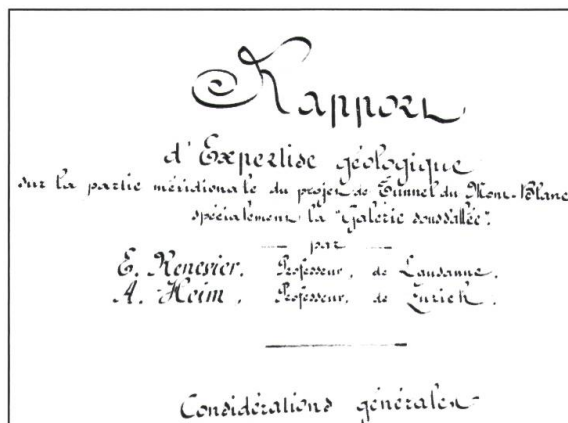 Rapport
d'Expertise géologique
sur la partie méridionale du projet de Tunnel du Mont-Blanc
spécialement la "Galerie sous vallée".
par
E. Renevier, Professeur, de Lausanne.
A. Heim, Professeur, de Zurich.
Considérations générales